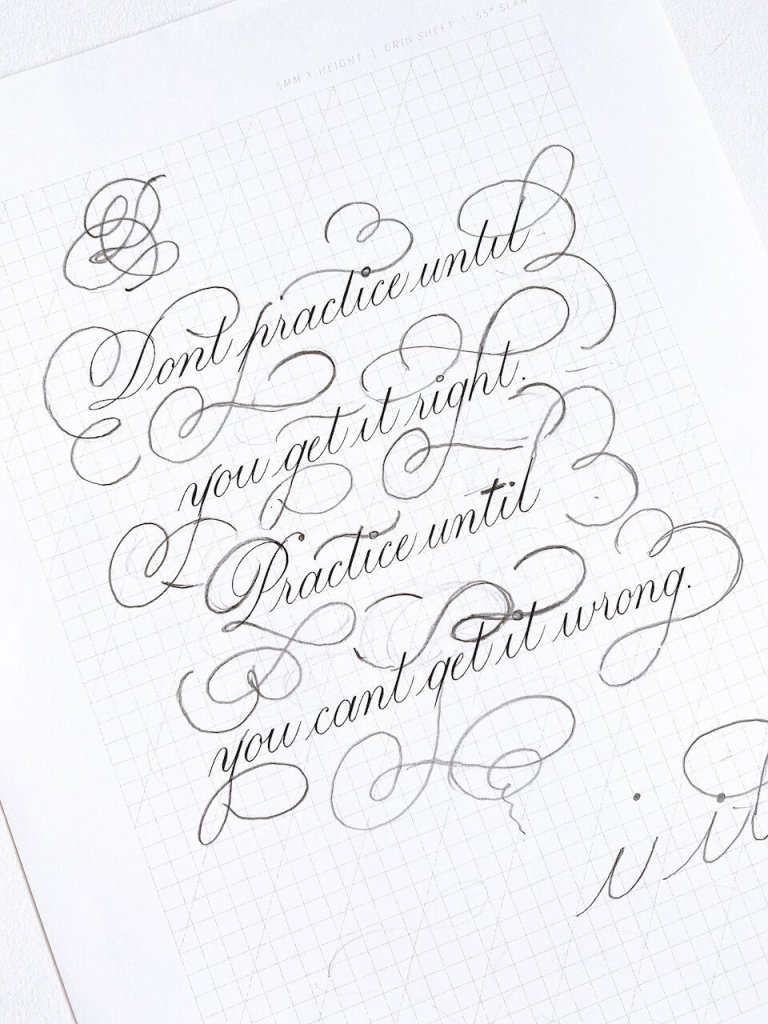 5MM X-HEIGHT | GRID SHEET | 55° SLAN
Dont practice until
you get it right.
Practice until
you cant get it wrong.
i it